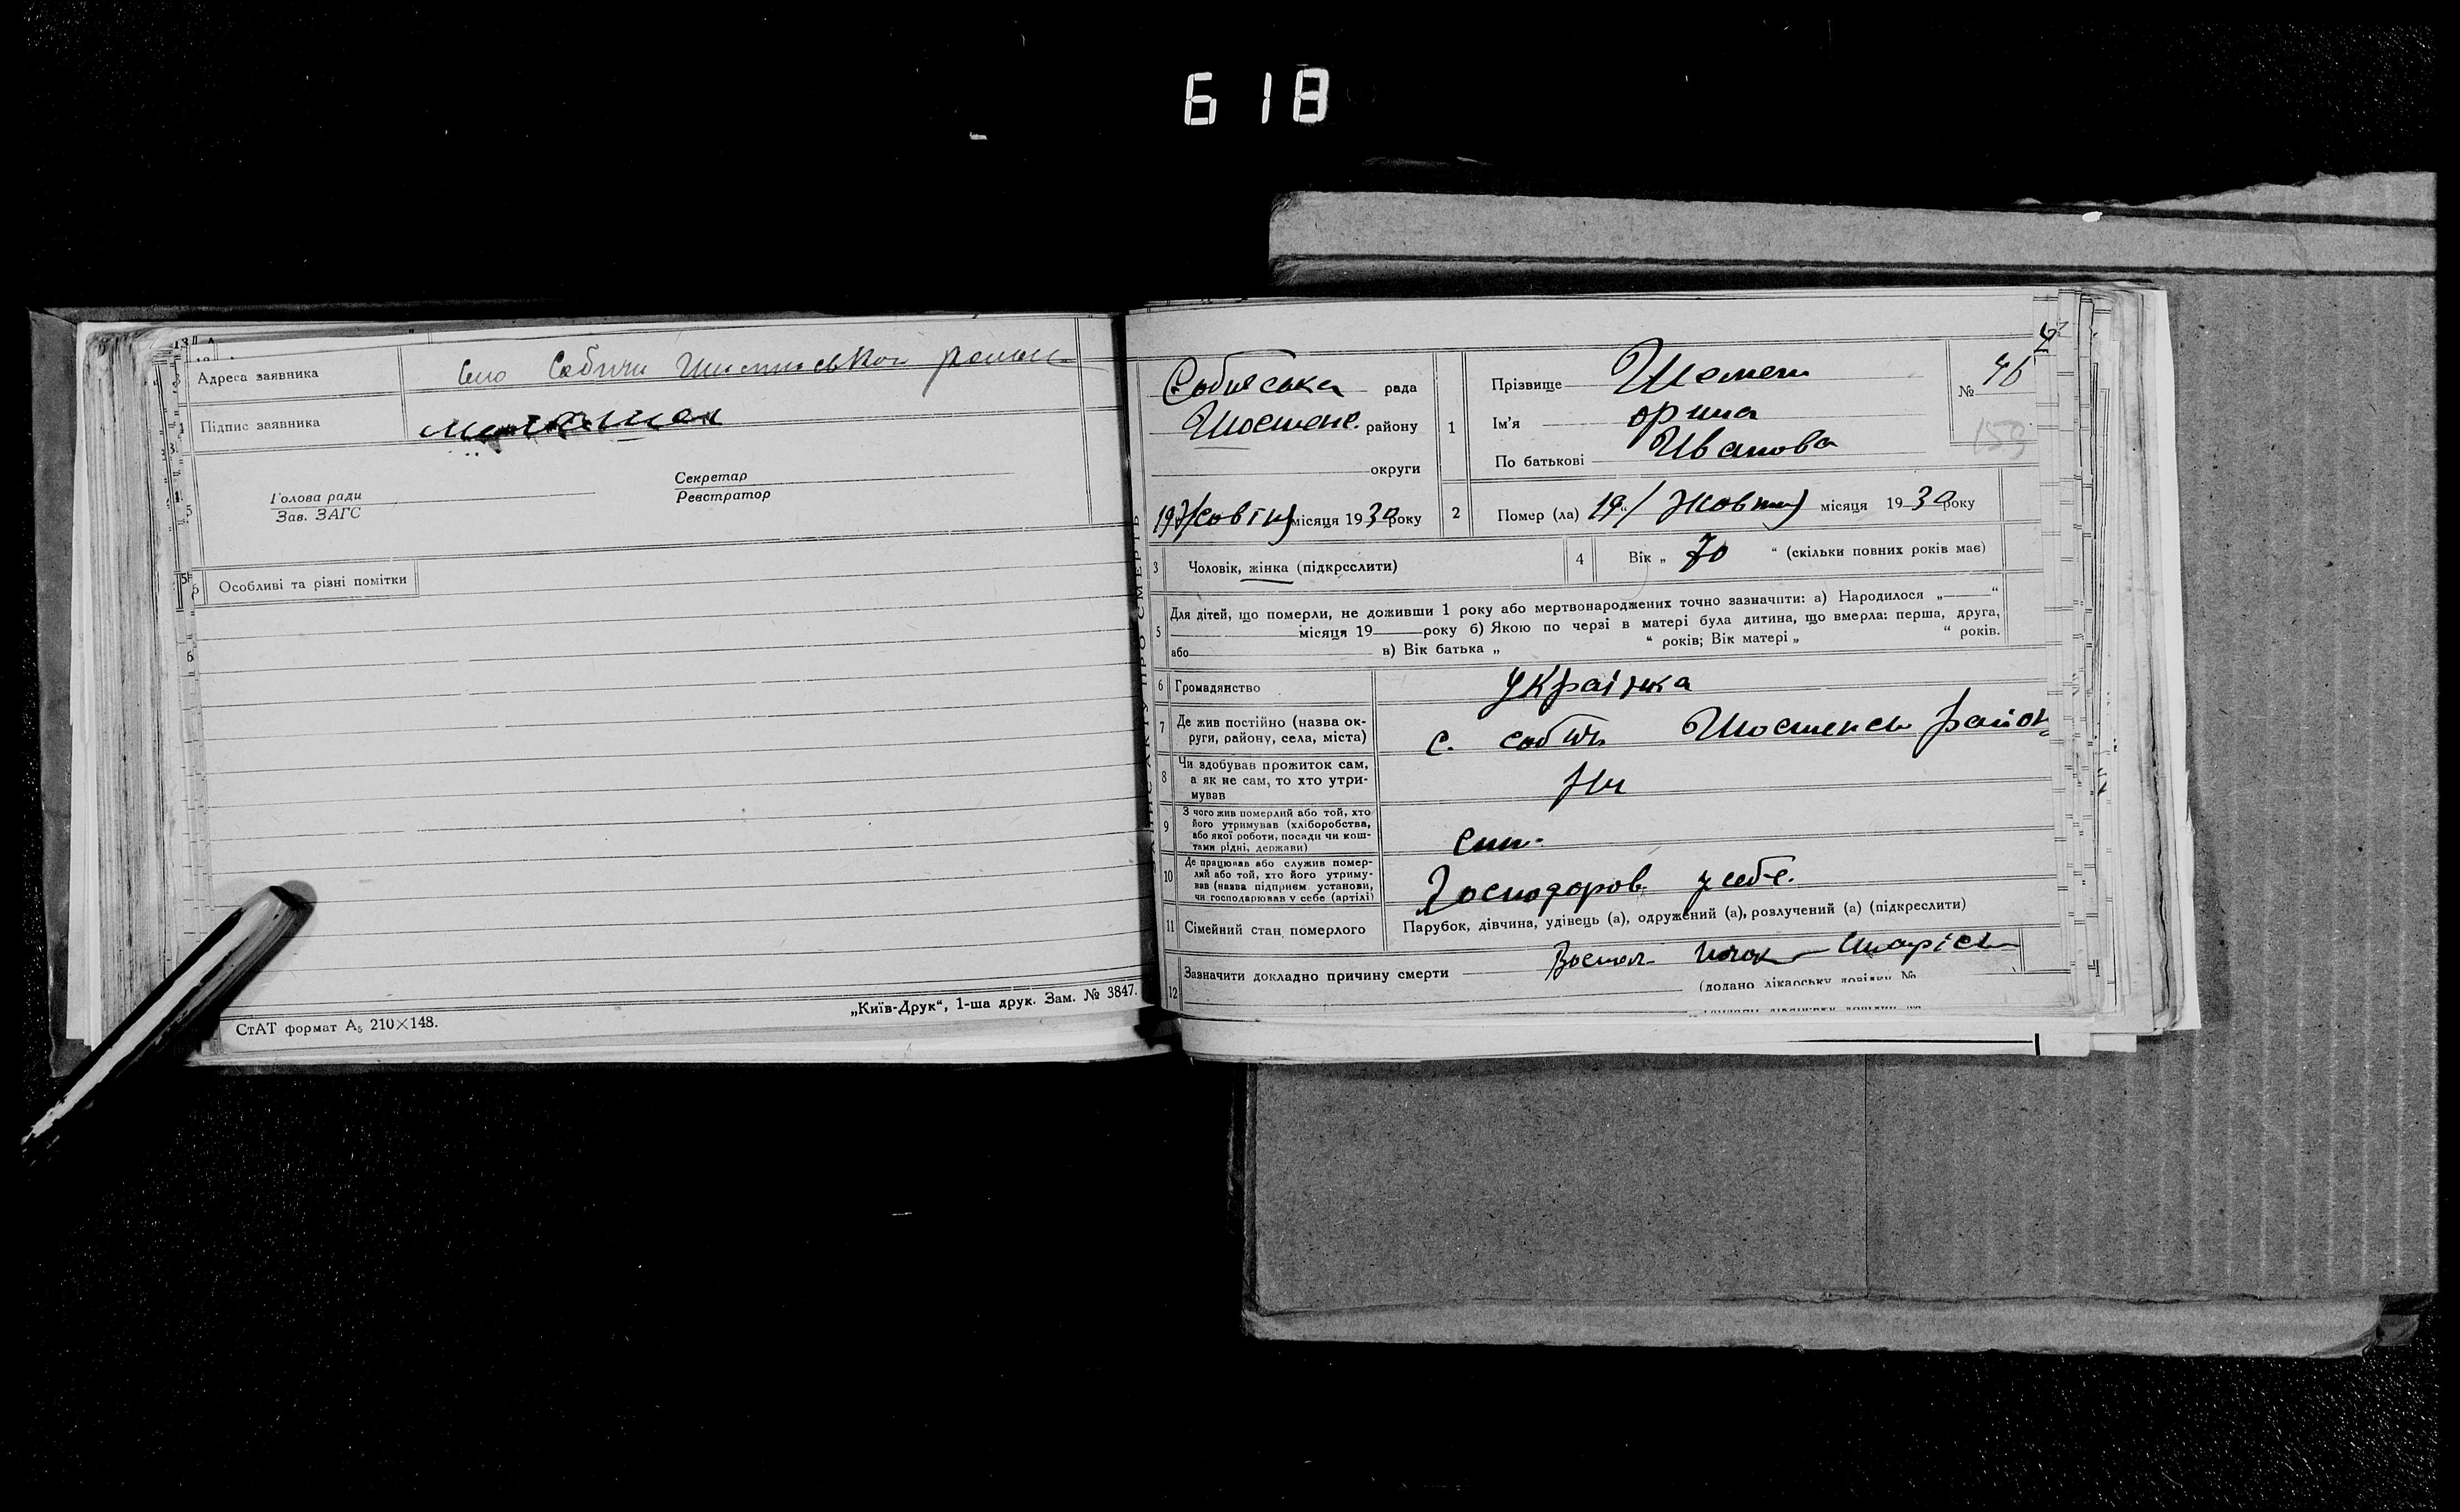 618
Адреса заявника
Село Собичи Шостенської району
Підпис заявника
Голова ради
Зав. ЗАГС
Секретар
Реєстратор
Особливі та різні помітки
СтАТ формат А₅ 210×148.
„Київ-Друк“, 1-ша друк. Зам. № 3847.
Собичська рада
Шостенс. району
округи
19 Жовтн місяця 1930 року
1
Прізвище Шемет
Ім'я Орина
По батькові Иванова
№ 46
153
2
Помер (ла) 19 Жовтн місяця 1930 року
3 Чоловік, жінка (підкреслити)
4 Вік „ 70 “ (скільки повних років має)
5 Для дітей, що померли, не доживши 1 року або мертвонароджених точно зазначити: а) Народилося „ “
місяця 19 року б) Якою по черзі в матері була дитина, що вмерла: перша, друга,
або в) Вік батька „ “ років; Вік матері „ “ років.
6 Громадянство Українка
7 Де жив постійно (назва ок-
руги, району, села, міста)
с. Собич Шостенськ район
8 Чи здобував прожиток сам,
а як не сам, то хто утри-
мував
Ни
9 З чого жив померлий або той, хто
його утримував (хліборобства,
або якої роботи, посади чи кош-
тами рідні, держави)
син.
10 Де працював або служив помер-
лий або той, хто його утриму-
вав (назва підприєм установи,
чи господарював у себе (артілі)
Господоров у себе.
11 Сімейний стан померлого
Парубок, дівчина, удівець (а), одружений (а), розлучений (а) (підкреслити)
12 Зазначити докладно причину смерти
старіст
(додано лікарську довідку №